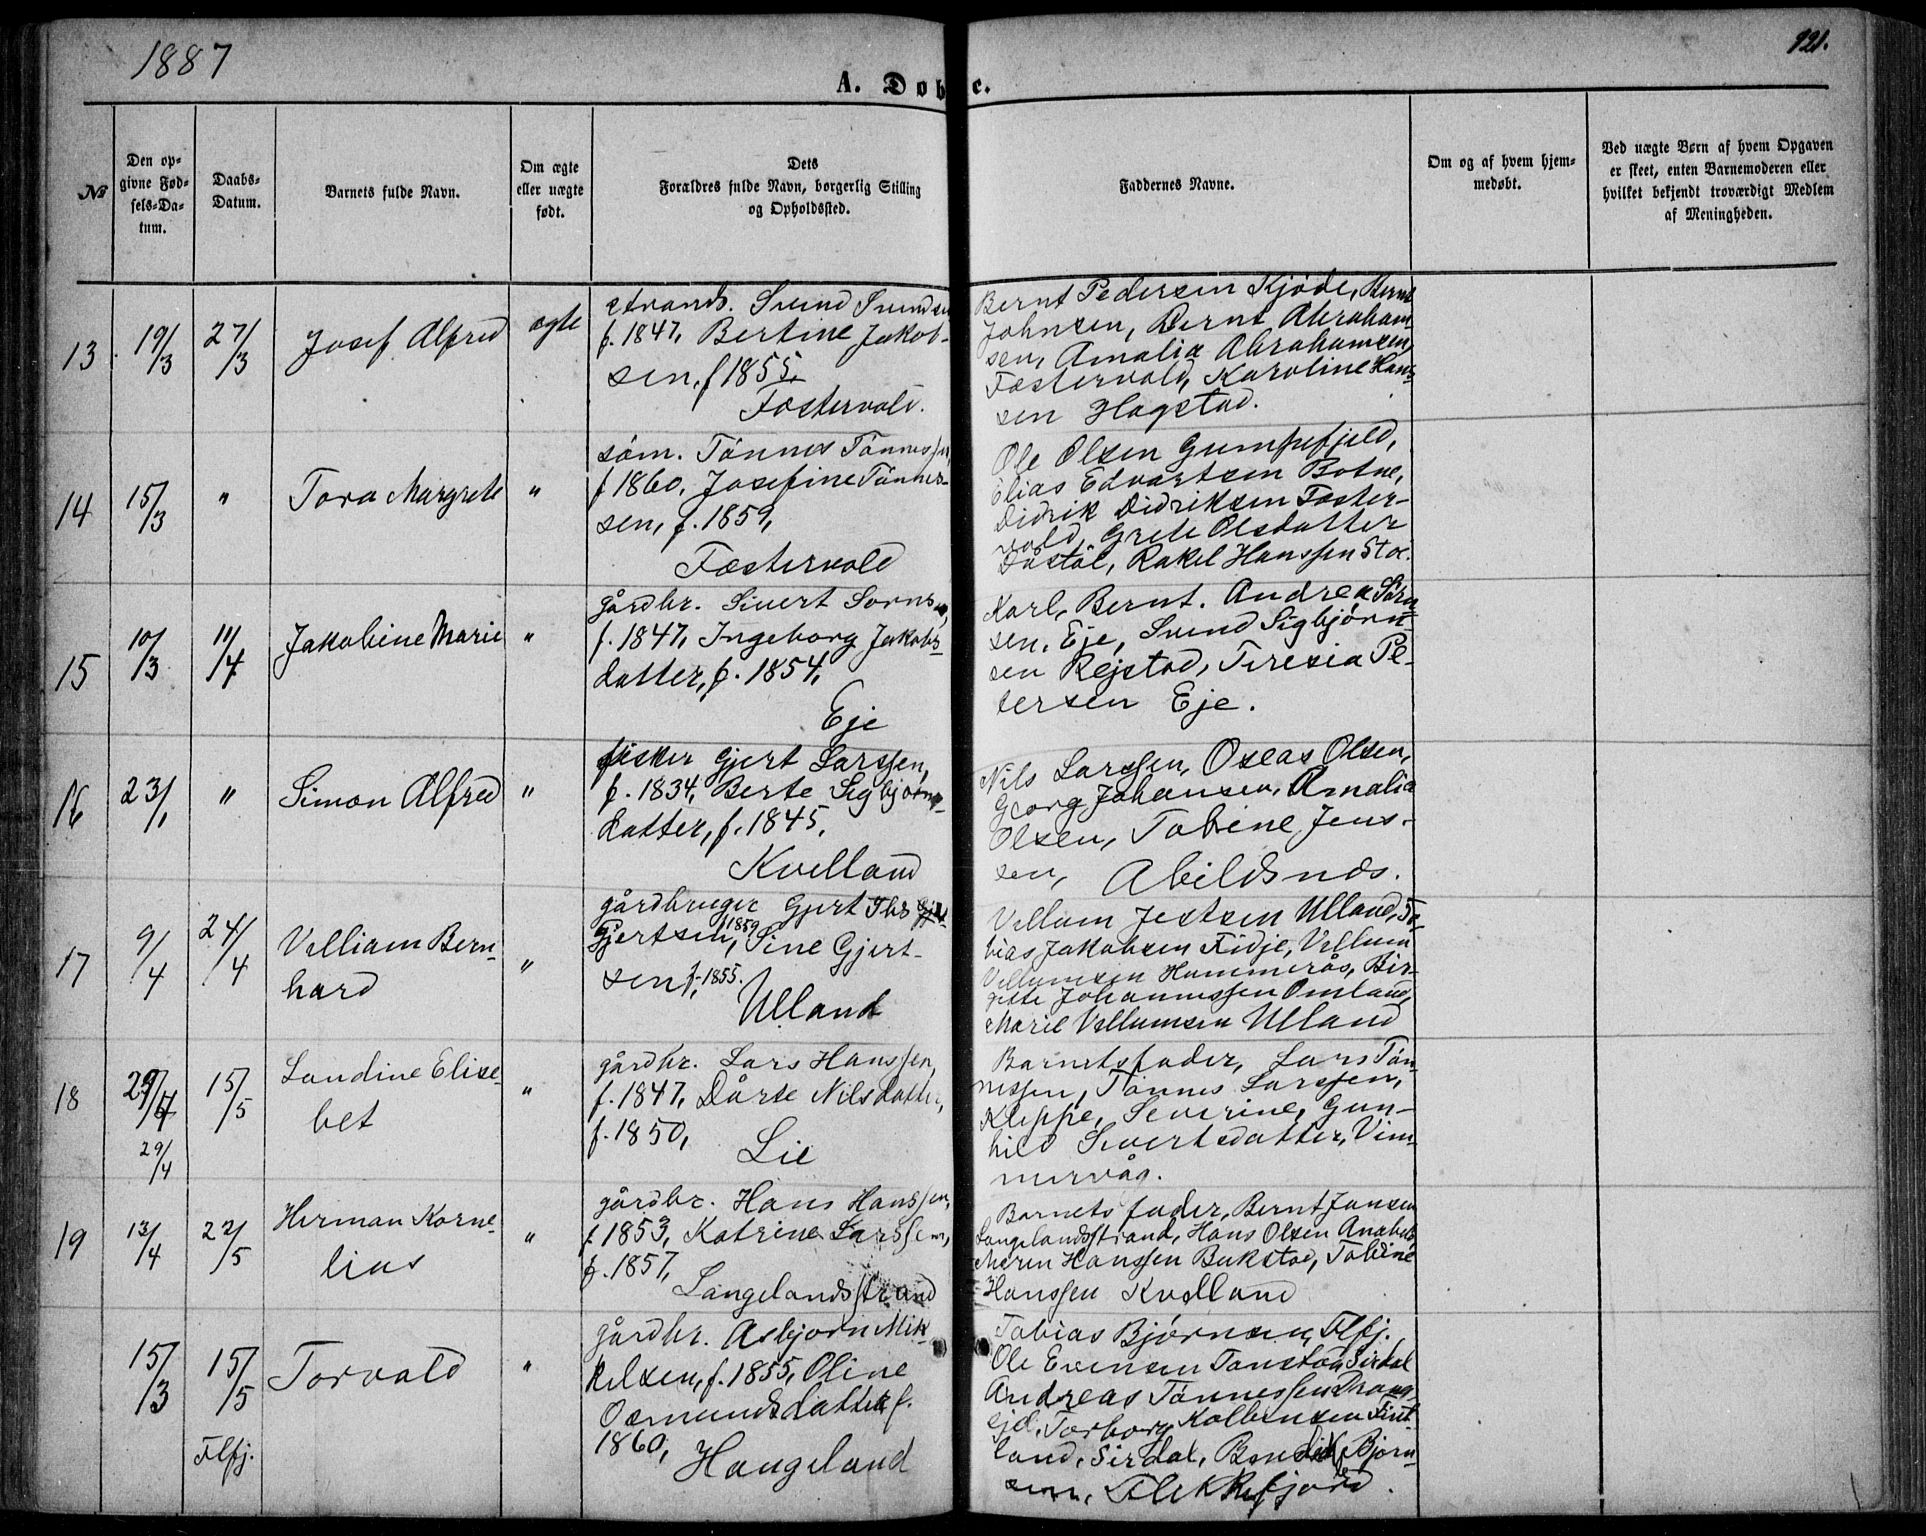 1887
121.
A. Døbte.
No
Den opgivne Fødsels-Datum.
Daabs-Datum.
Barnets fulde Navn.
Om ægte eller uægte født.
Dets Forældres fulde Navn, borgerlig Stilling og Opholdssted.
Faddernes Navne.
Om og af hvem hjemmedøbt.
Ved uægte Børn af hvem Opgaven er skeet, enten Barnemoderen eller hvilket bekjendt troværdigt Medlem af Meningheden.
13
19/3
27/3
Josef Alfred
ægte
strands. Svend Svendsen
f. 1847, Bertine Jakob-
sen, f 1855,
Fostervold.
Bernt Pedersen Kjøde, Bernt
Johnsen, Bernt Abraham-
sen, Amalia Abrahamsen,
Fostervold, Karoline Han-
sen Hagstad.
14
15/3
"
Tora Margrete
"
søm. Tönnes Tönnessen
f 1860, Josefine Tönnes-
sen, f. 1859,
Fæstervold
Ole Olsen Gumpefjeld,
Elias Edvartsen Botne,
Didrik Didriksen Foster-
vold, Grete Olsdatter
Dostöl, Rakel Hanssen Stoe.
15
10/3
11/4
Jakobine Marie
"
gårdbr. Sivert Sørensen,
f. 1847, Ingeborg Jakobs-
datter, f. 1854,
Eje
Karl, Bernt. Andrea Sörn-
sen, Eje, Svend Sigbjørn-
sen Rejstad, Teresia Pe-
tersen Eje.
16
23/1
"
Simon Alfred
"
fisker Gjert Larssen,
f. 1834, Berte Sigbjørns-
datter, f. 1845,
Kvelland
Nils Larssen, Oseas Olsen,
Georg Johansen, Amalia
Olsen, Tobine Jens-
sen, Abildsnds.
17
9/4
24/4
Velliam Bern-
hard
"
gårdbruger Gjert Ths
Gjertsen, 1859, Sine Gjert-
sen f. 1855.
Ulland
Vellum Jestsen Ulland, To-
bias Jakobsen Fidje, Vellum
Vellumsen Hammerås, Bir-
gitte Johannessen Omland,
Marie Vellumsen Ulland
18
29/4
29/4
15/5
Landine Elise-
bet
"
gårdbr. Lars Hanssen,
f. 1847, Dårte Nilsdatter,
f. 1850,
Lie
Barnetsfader, Lars Tön-
nessen, Tönnes Larssen,
Kleppe, Severine, Gun-
hild Sivertsdatter, Vim-
mervåg.
19
13/4
22/5
Herman Korne-
lius
"
gårdbr. Hans Hanssen,
f. 1853, Katrine Larssen,
f. 1857,
Langelandsstrand
Barnets fader, Bernt Jansen
Langelandsstrand, Hans Olsen
Maren Hanssen Bukstad, Tobine
Hanssen Kvelland
15/3
15/5
Flfj.
Torvald
"
gårdbr. Asbjørn Mik-
kelsen, f. 1855, Oline
Osmundsdatter f.
1860,
Haugeland
Tobias Bjørnsen, Flfj.
Ole Evensen Tonstad Sirdal
Andreas Tønnessen Drang-
ejd, Torborg Kolbensen Fint-
land, Sirdal, Bendik Bjørn-
sen, Flekkefjord.